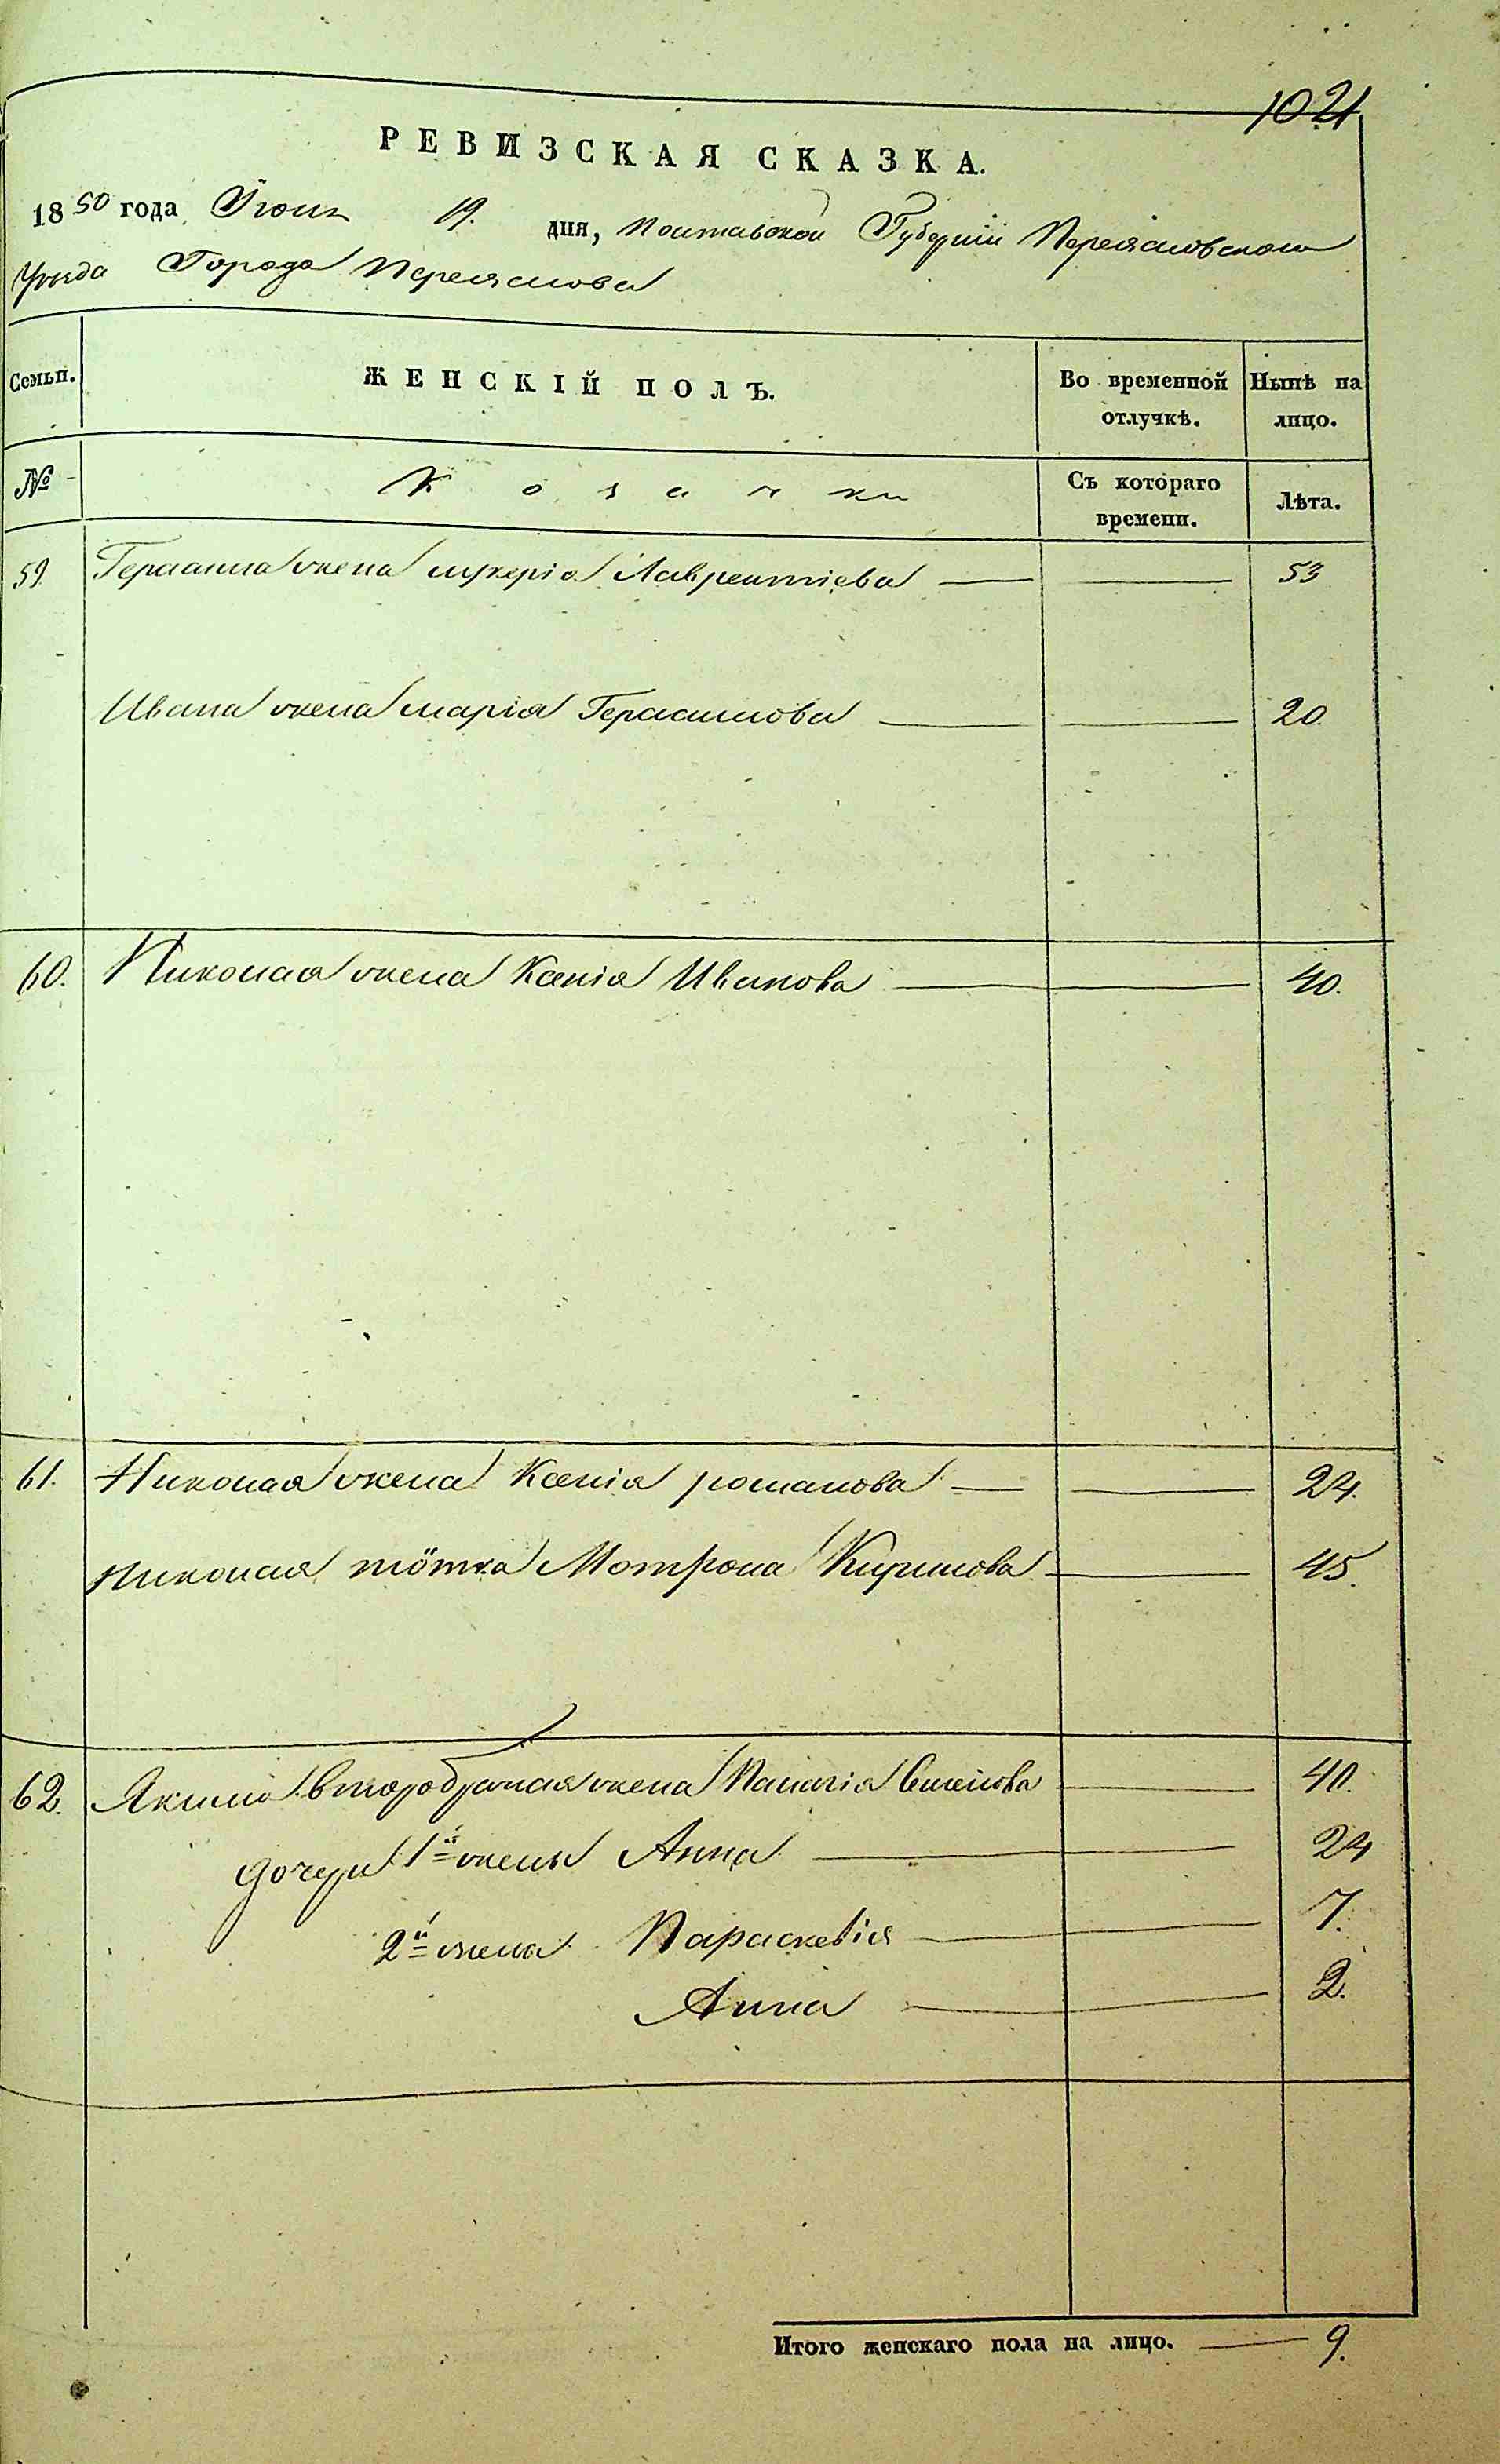 1021
РЕВИЗСКАЯ СКАЗКА.
1850 года Июня 19. дня, Полтавской Губерніи Переясловского
Уезда Города Переяслова
Семьи. ЖЕНСКІЙ ПОЛЪ. Во временной отлучкѣ. Нынѣ на лицо.
№ Козачки Съ котораго времени. Лѣта.
59. Герасима жена Лукерія Лаврентіева — — 53
Ивана жена Марія Герасимова — — 20.
60. Николая жена Ксенія Иванова — — 40.
61. Николая жена Ксенія Романова — — 24.
Николая тётка Мотрона Кирилова — — 45.
62. Якима второбрачная жена Палагія — 40.
дочери 1й жены Анна — 24
2й жены Параскевія — 7.
Анна — 2.
Итого женскаго пола на лицо. — 9.